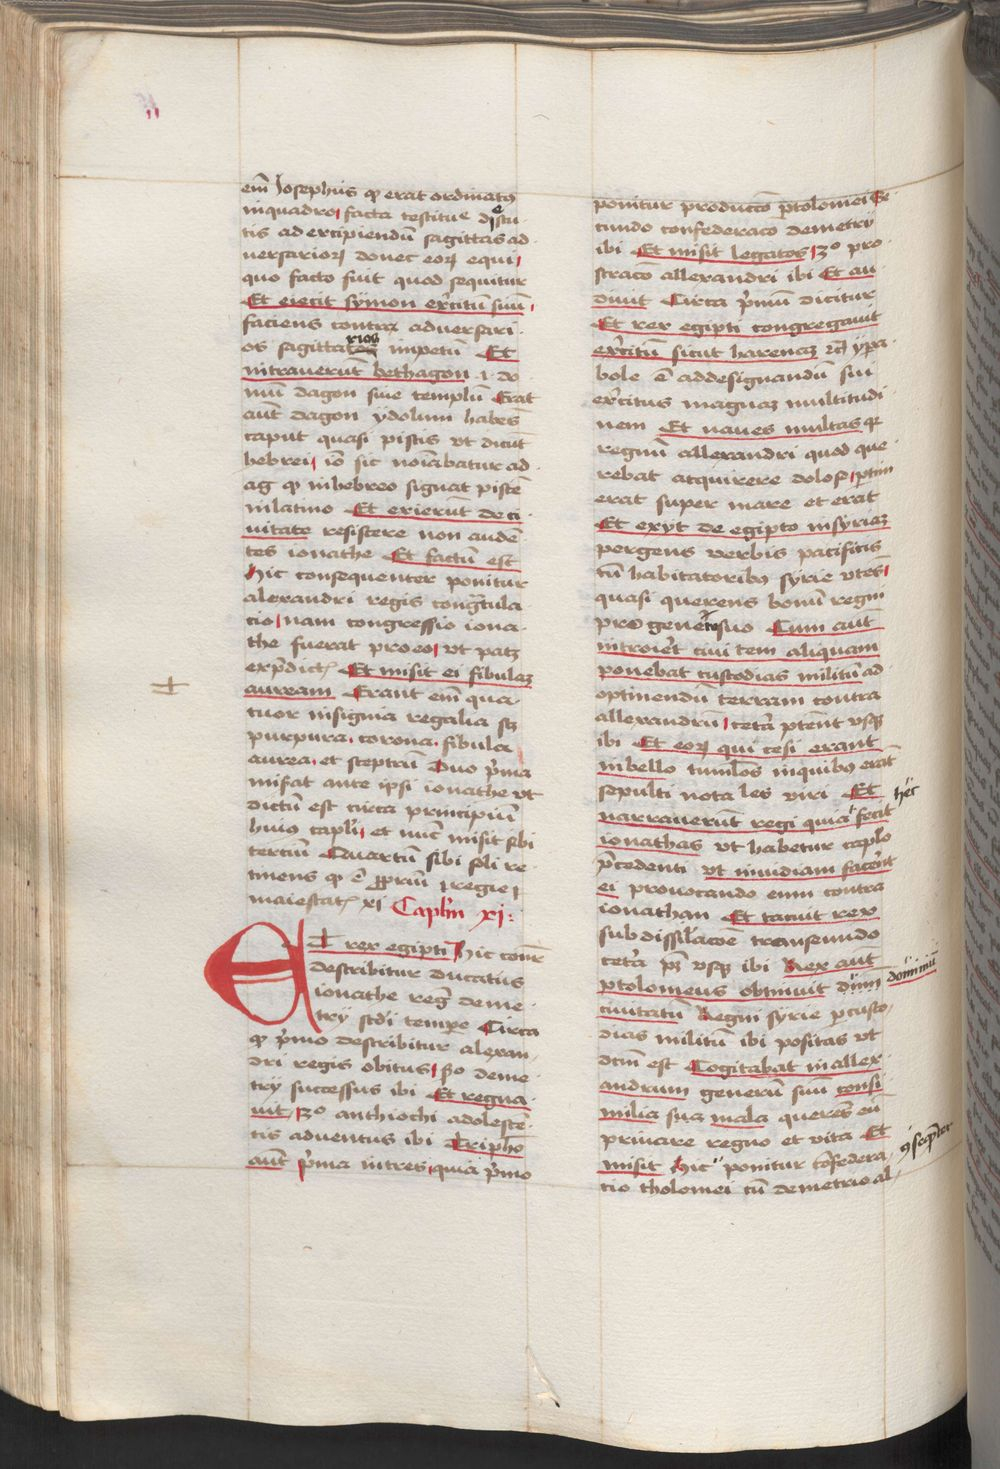 em̄ Josephus qͥ erat ordinatꝰ
in quadro facta testitue distu
tis ad excipiendū sagittas ad
uersarioꝝ donec eoꝝ equi
quo facto fuit quod sequitur
Et eiecit symon exc̄itū suū
faciens contra aduersari
os sagittarios impetū Et
intrauerūt bethagon .i. do
mū dagon siue templū Erat
aūt dagon ydolum habēs
caput quasi piscis vt dicūt
hebrei iō sic noīabatur a d
ag qͥ in hebreo signat piscē
in latino Et exierūt de ci
uitate resistere non audē
tes ionathe Et factū est
Hic consequenter ponitur
alexandri regis congr̄tula
cio nam congressio iona
the fuerat pro eo vt patꝫ
ex p̄dictꝭ Et misit ei fibulaꝫ
auream Erant em̄ qua
tuor insignia regalia sꝫ
purpura. corona. fibula
aurea. et sceptrū Duo p̄ma
misat ante ipsi ionathe vt
dictū est circa principiū
huiꝰ capl̄i et nūc misit sibi
terciū Quartū sibi soli re
tinens qͥ ē ꝓpriū regie
maiestatꝭ xj Caplm̄ xj:
ET rex egipti Hic cōnr̄
describitur ducatus
ionathe reḡ deme
trij scd̄i tempe Circa
qͥ p̄mo describitur alexan
dri regis obitus 2o deme
try successus ibi Et regna
uit 3o anthiochi adolescē
tis aduentus ibi Triphō
aūt p̄ma in tres quia p̄mo
ponitur producc̄o ptolomei Se
cundo confederac̄o demetrij
ibi Et misit legatos 3o pro
strac̄o allexandri ibi Et au
diuit Circa p̄mū dicitur
Et rex egipti congregauit
exc̄itū sicut harenaꝫ rc̄ ypa
bole ē ad designandū sui
exc̄itus magnaꝫ multitudi
nem Et naues multas qꝛ
regnū allexandri quod que
rebat acquirere dolose ptim
erat super mare et erat
Et exyt de egipto in syriaꝫ
pergens verbis pacificis
cū habitatoribꝰ syrie vtēs
quasi querens bonū regni
pro genero suo Cum aūt
introiret ciuitem aliquam
ponebat custodias militū ad
optinendū terram contra
allexandrū cetā ptēnt vsqꝫ
ibi Et eoꝝ qui cesi erant
in bello tumlos in quibꝰ erāt
sepulti nota les viri Et
narrauerūt regi quia fecit
hec
ionathas vt habetur caplo
p̄cedenti vt inuidiam facerēt
ei prouocando eum contra
ionathan Et tacuit rex
sub dissilac̄oe transeundo
cetā pꝫ vsqꝫ ibi Rex aūt
ptolomeus obtinuit dn̄m
dominiū
ciuitatū Regni syrie p custo
dias militū ibi positas vt
dcm̄ est Cogitabat in allex
andrum generū suū consi
milia sua mala querēs eū
priuare regno et vita Et
misit Hic ponitur cōfedera
ꝯseqn̄ter
cio tholomei cū demetrio al